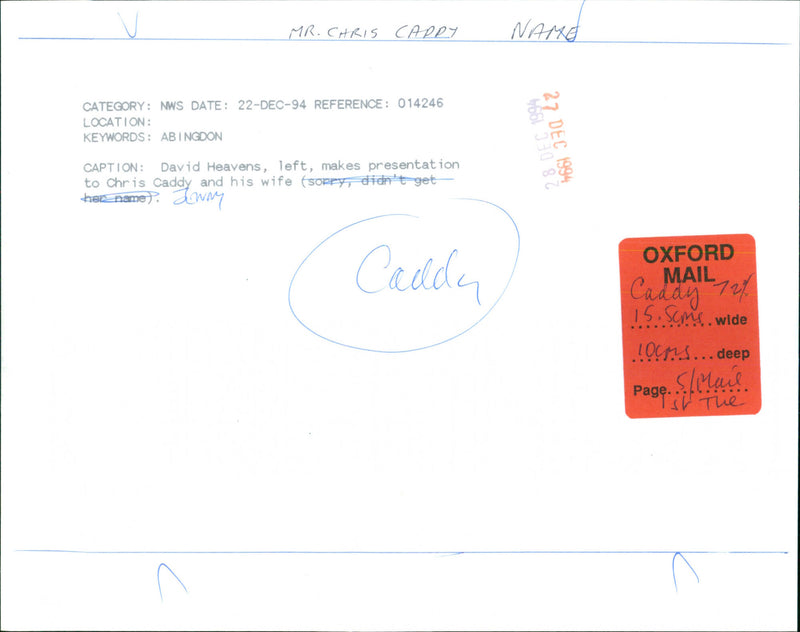 MR. CHRIS CADDY NAME
CATEGORY: NWS DATE: 22-DEC-94 REFERENCE: 014246
LOCATION:
KEYWORDS: ABINGDON
CAPTION: David Heavens, left, makes presentation
to Chris Caddy and his wife (sorry, didn't get
her name). JENNY
27 DEC 1994
28 DEC 1994
Caddy
OXFORD
MAIL
Caddy 72%
15.5cms wide
10cms deep
Page S/Mail
1st Tue